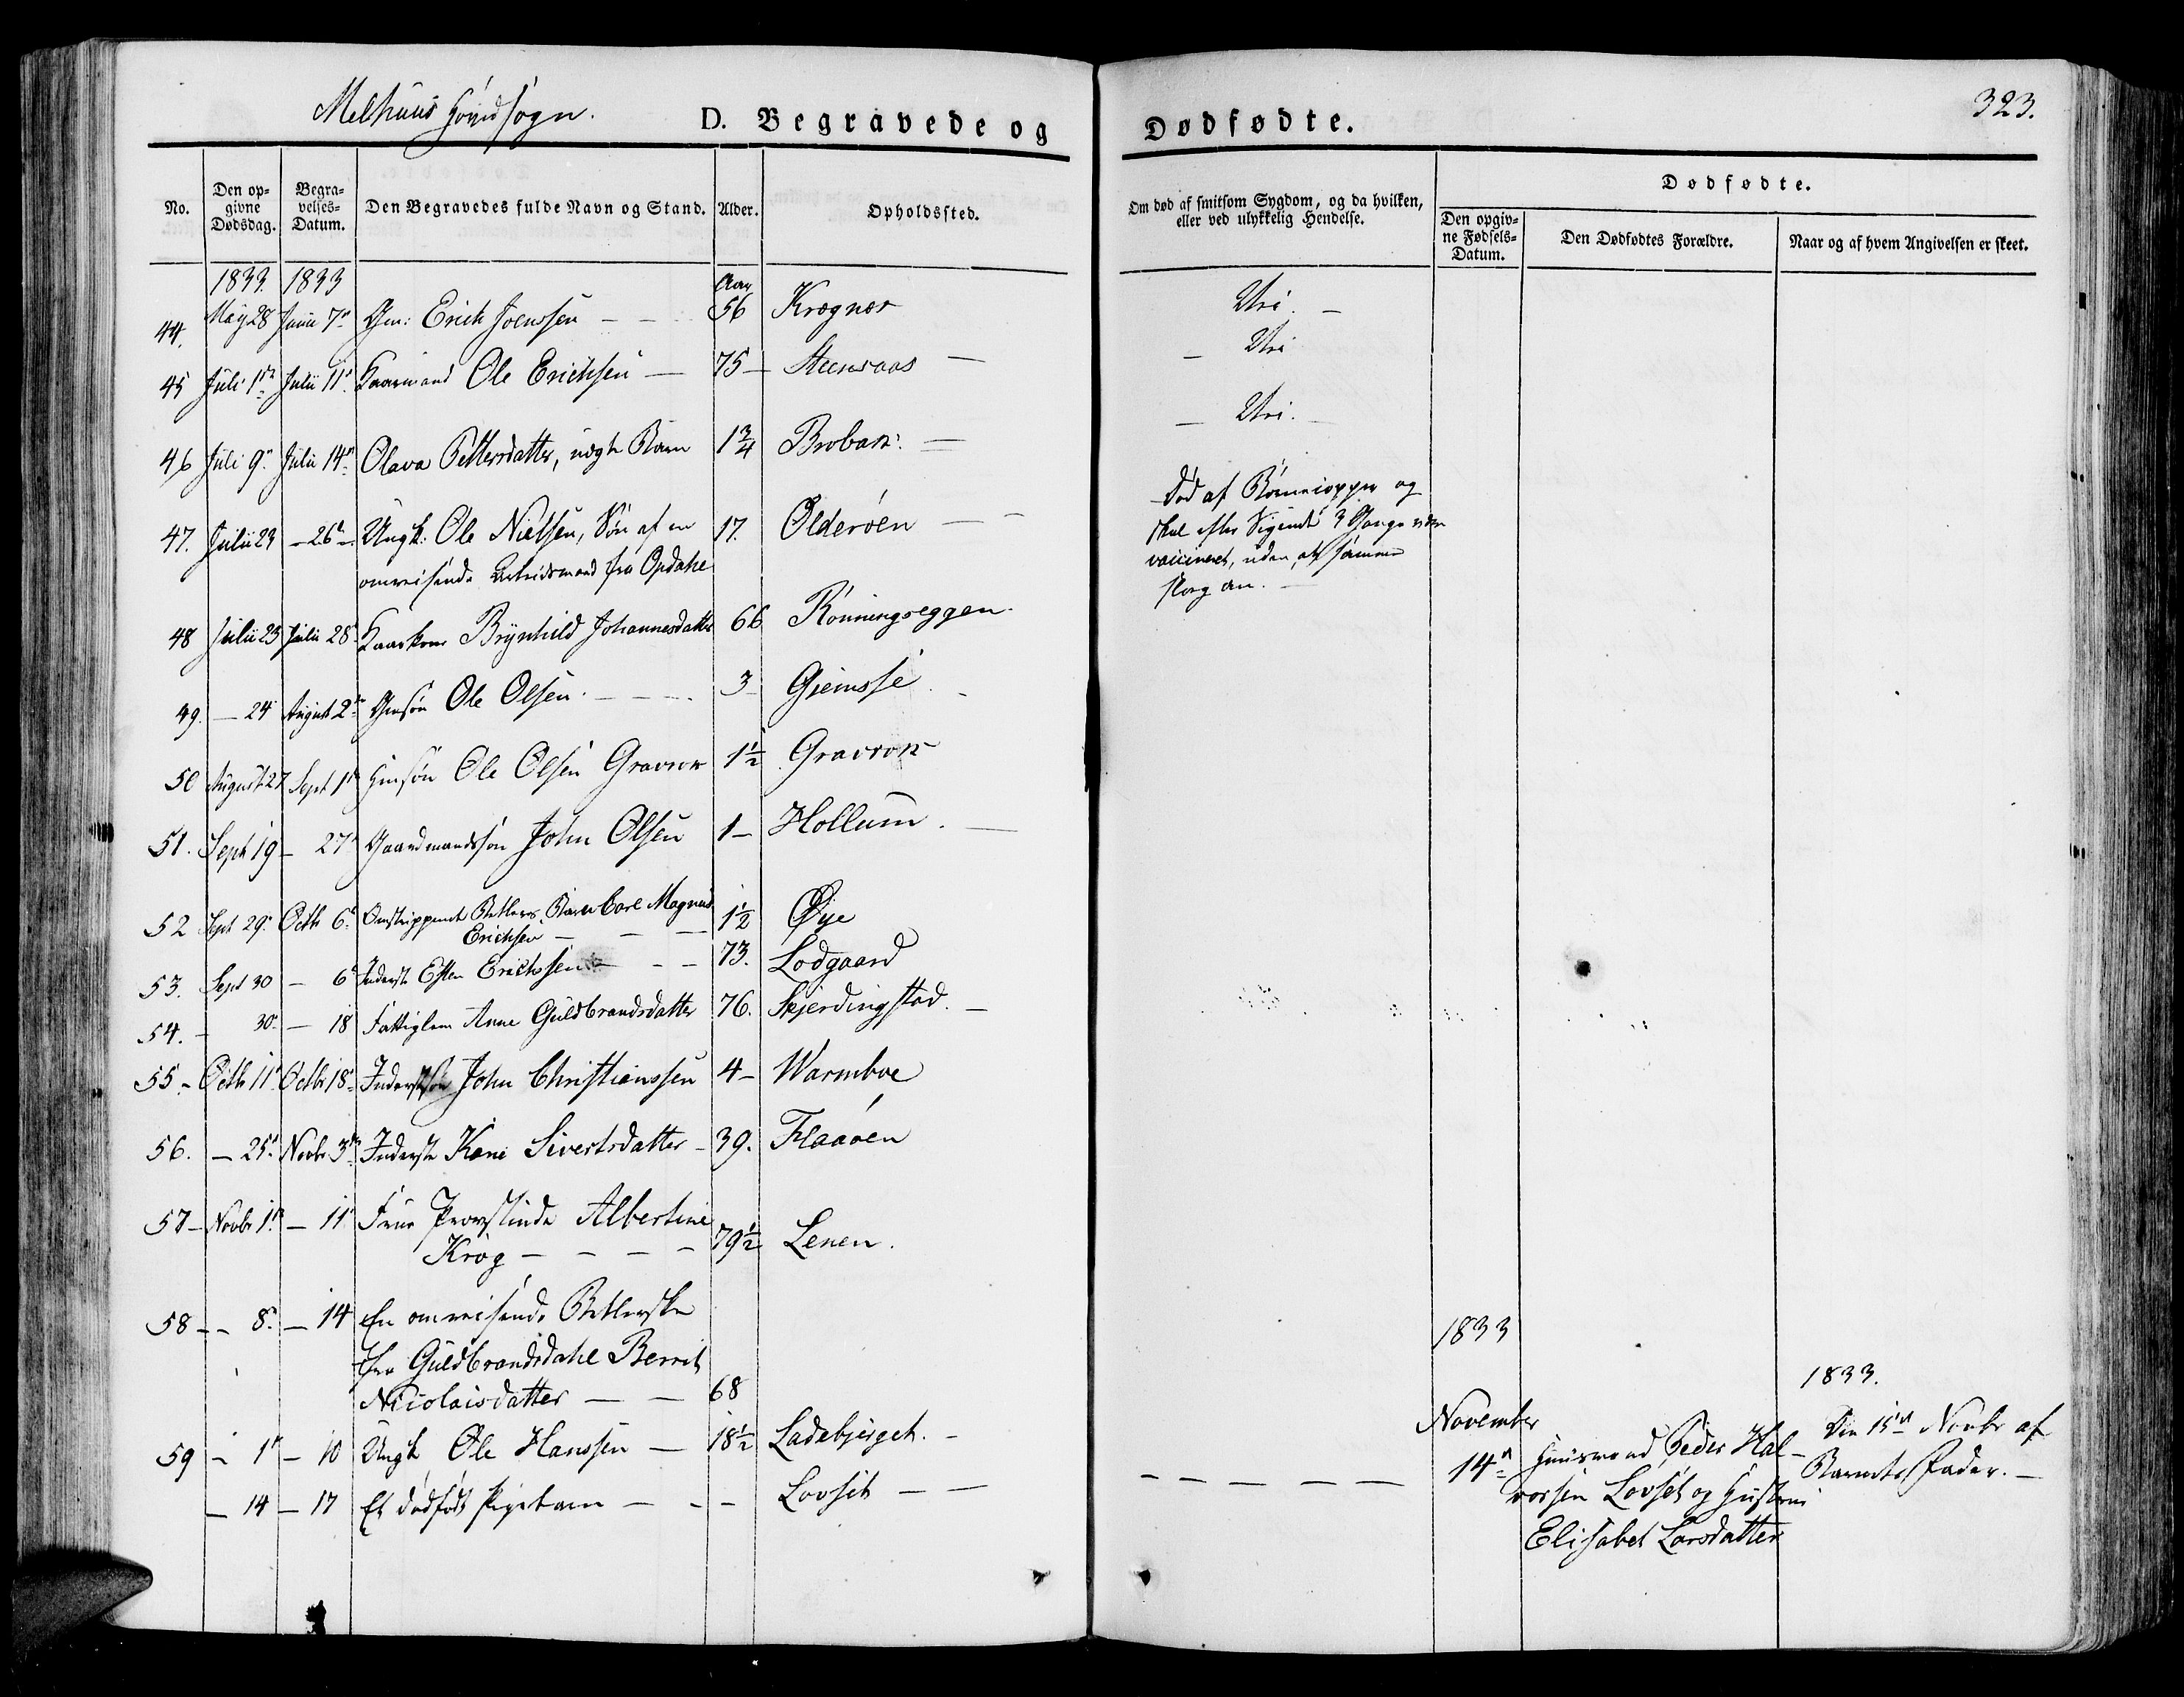 Melhuus Hovedsogn.
D. Begravede og Dødfødte.
323.
No.
Den opgivne Dødsdag.
Begravelses-Datum.
Den Begravedes fulde Navn og Stand.
Alder.
Opholdssted.
Om død af smitsom Sygdom, og da hvilken,
eller ved ulykkelig Hendelse.
Dødfødte.
Den opgivne Fødsels-Datum.
Den Dødfødtes Forældre.
Naar og af hvem Angivelsen er skeet.
1833. 1833 Aar
44. May 28 Junii 7de Gm: Erich Joenssen — 56 Krognes
45 Juli 1ste Julii 11te Kaarmand Ole Erichsen — 75 —
46 Juli 9de Julii 14de Olava Pettersdatter, uægte Barn 1 3/4
47. Julii 23 — 26de — Ungk: Ole Nielsen, Søn af en 17. Olderöen —
omreisende Arbeidsmand fra Opdahl
Död af Börnekopper og
skal efter Sigende 3 Gange være
vaccineret, uden at samme
slog an. —
48 Julii 23 Julii 28 Kaarkone Brynhild Johannesdatter 66 Rönningseggen
49. — 24 August 2den Gmsøn Ole Olsen. — 3 Gjemsse
50 August 27 Sept 1ste Gmsøn Ole Olsen Gravrok 1 1/2 Gravrok
51. Sept 19 — 27de Gaardmandssøn John Olsen 1 — Hollum. —
52 Sept 29. Octbr 6te Omstrippende Betlers Barn Carl Magnus 1 1/2 Øye
Erichsen — — —
53. Sept 30 — 6te Inderst Esten Erichssen — — 73. Lodgaard
54. — 30 — 18 Fattiglem Anne Guldbrandsdatter 76. Skjerdingstad. —
55 — Octbr 11te Octbr 18de Inderstsøn John Christianssen 4 — Warmboe
56. — 25de Novbr 3die Inderste Kone Sivertsdatter — 39. Flaaöen
57 — Novbr 1ste — 11te Frue Provstinde Albertine
Krog — — — — 79 1/2 Lenen.
58 — — 8de — 14 En omreisende Betlerske
fra Guldbrandsdahl Berrit
Nicolaisdatter — — 68
59 — 1ste — 10 Ungk Ole Hanssen — 18 1/2 Ladebjerget. —
— 14 — 17 Et dödfödt Pigebarn — — — Lovset — —
1833
November
14de
Huusmand Peder Hal-
vorsen Lovset og Hustrue
Elisabet Larsdatter
1833.
Den 15de Novbr af
Barnets Fader. —